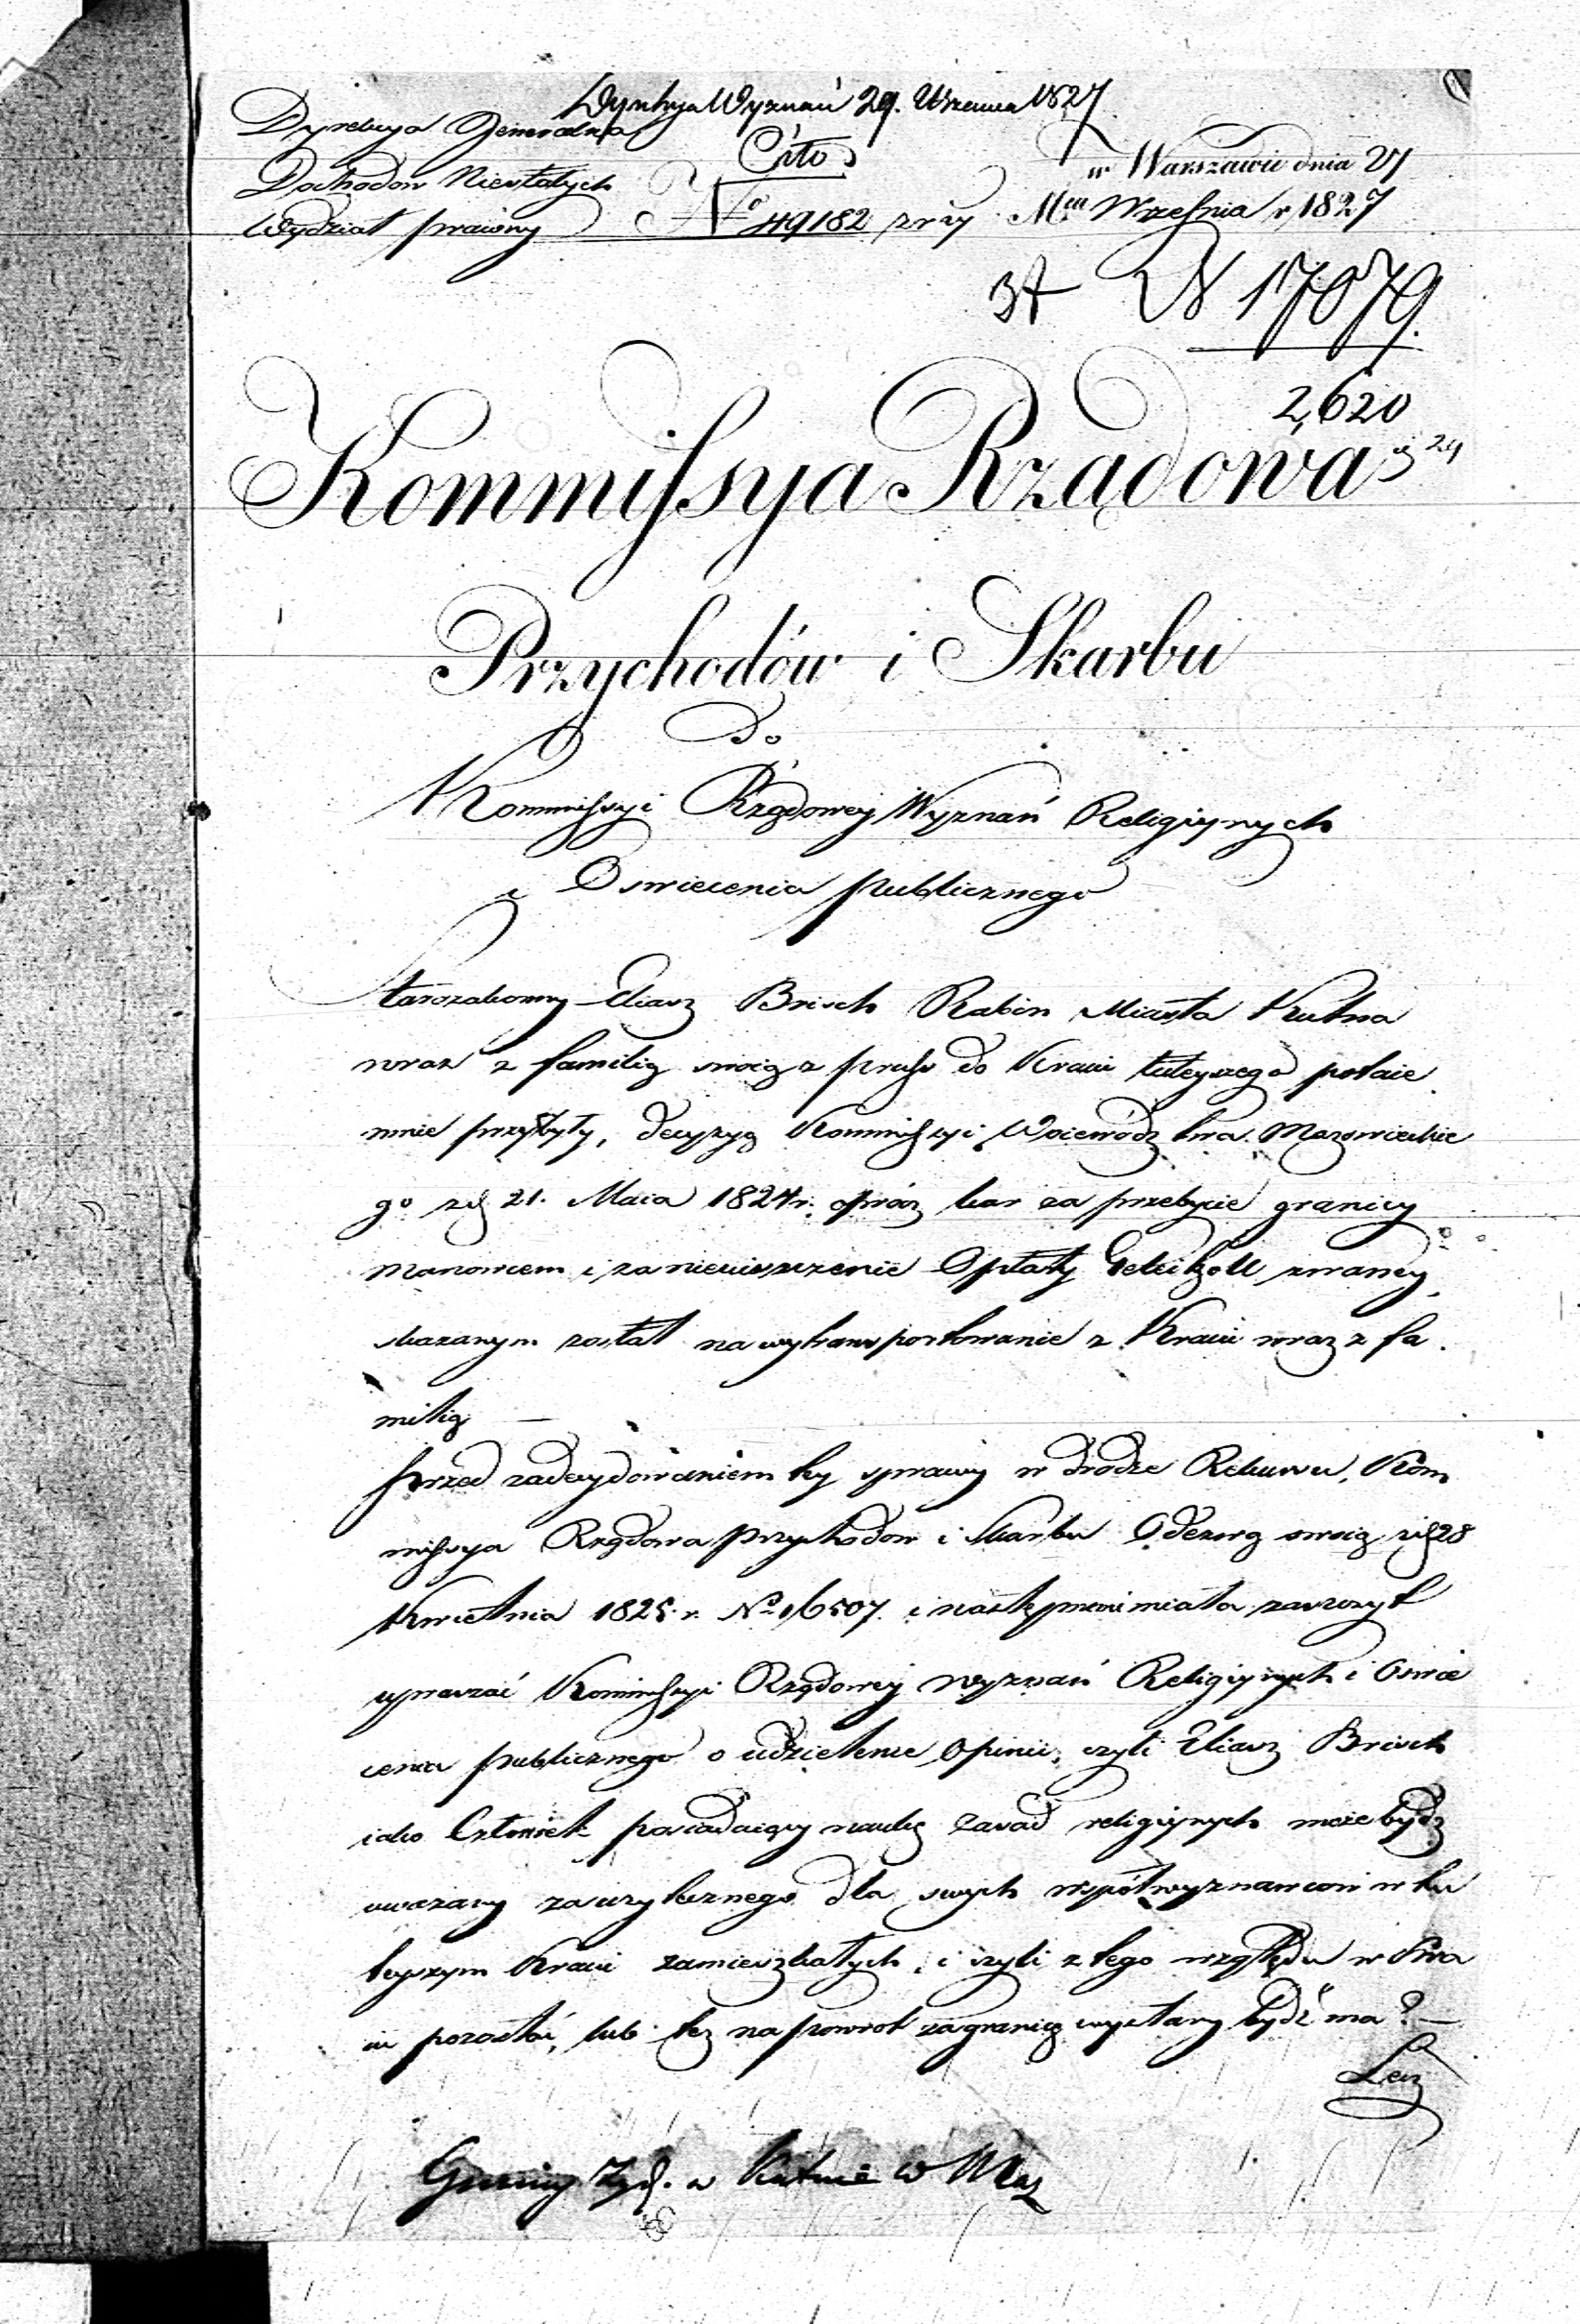 Dyrekcya Wyznań 29. Września 1827
Dyrekcya Generalna
Cito
w Warszawie dnia 27
Dochodów Niestałych
Mca Września r 1827
Wydział prawny
No 49182
N 17079.
2,620
Kommissya Rządowa
Przychodów i Skarbu
Do
Kommissyi Rządowey Wyznań Religiynych
i Oswiecenia publicznego
Starozakonny Eliasz Brisch Rabin Miasta Kutna
wraz z familią swoią z pruss do Kraiu tuteyszego potaie
mnie przybyły, decyzyą Kommissyi Woiewództwa Mazowieckie
go z d. 21. Maia 1824 r. oprócz kar za przebycie granicy
manowcem i za nieuiszczenie Opłaty Geleitzoll zwaney,
skazanym został na wytransportowanie z Kraiu wraz z fa
milią —
przed zadecydowaniem tey sprawy w drodze Rekursu, Kom
missya Rządowa Przychodów i Skarbu Odezwą swoią z d 28
Kwietnia 1825. r. No 16507. i następnemi miała zaszczyt
upraszać Kommissyi Rządowey Wyznań Religiynych i Oswie
cenia publicznego o udzielenie Opinii, czyli Eliasz Brisch
iako Człowiek posiadaiący naukę zasad religiynych może bydz
uważany za użytecznego dla swych współwyznawców w tu
teyszym Kraiu zamieszkałych, i czyli z tego względu w Kra
iu pozostać, lub tez na powrót za granicę wysłany bydź ma? —
Lecz
Gminy Żyd. w Kutnie W Maz